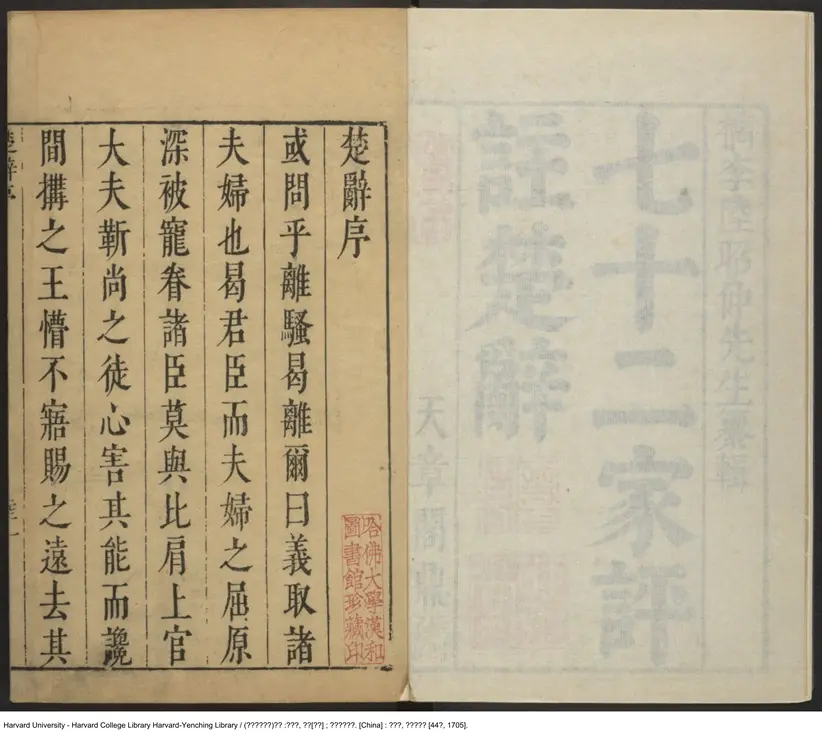 檇李陸昭仲先生纂輯
七十二家評
註楚辭
天章閣
楚辭序
哈佛大學漢和
圖書館珍藏印
或問乎離騷曷離爾曰義取諸
夫婦也曷君臣而夫婦之屈原
深被寵眷諸臣莫與比肩上官
大夫靳尚之徒心害其能而讒
間搆之王懵不寤賜之遠去其
楚辭序
Harvard University - Harvard College Library Harvard-Yenching Library / (??????)?? :???, ??[??] ; ??????. [China] : ???, ????? [44?, 1705].